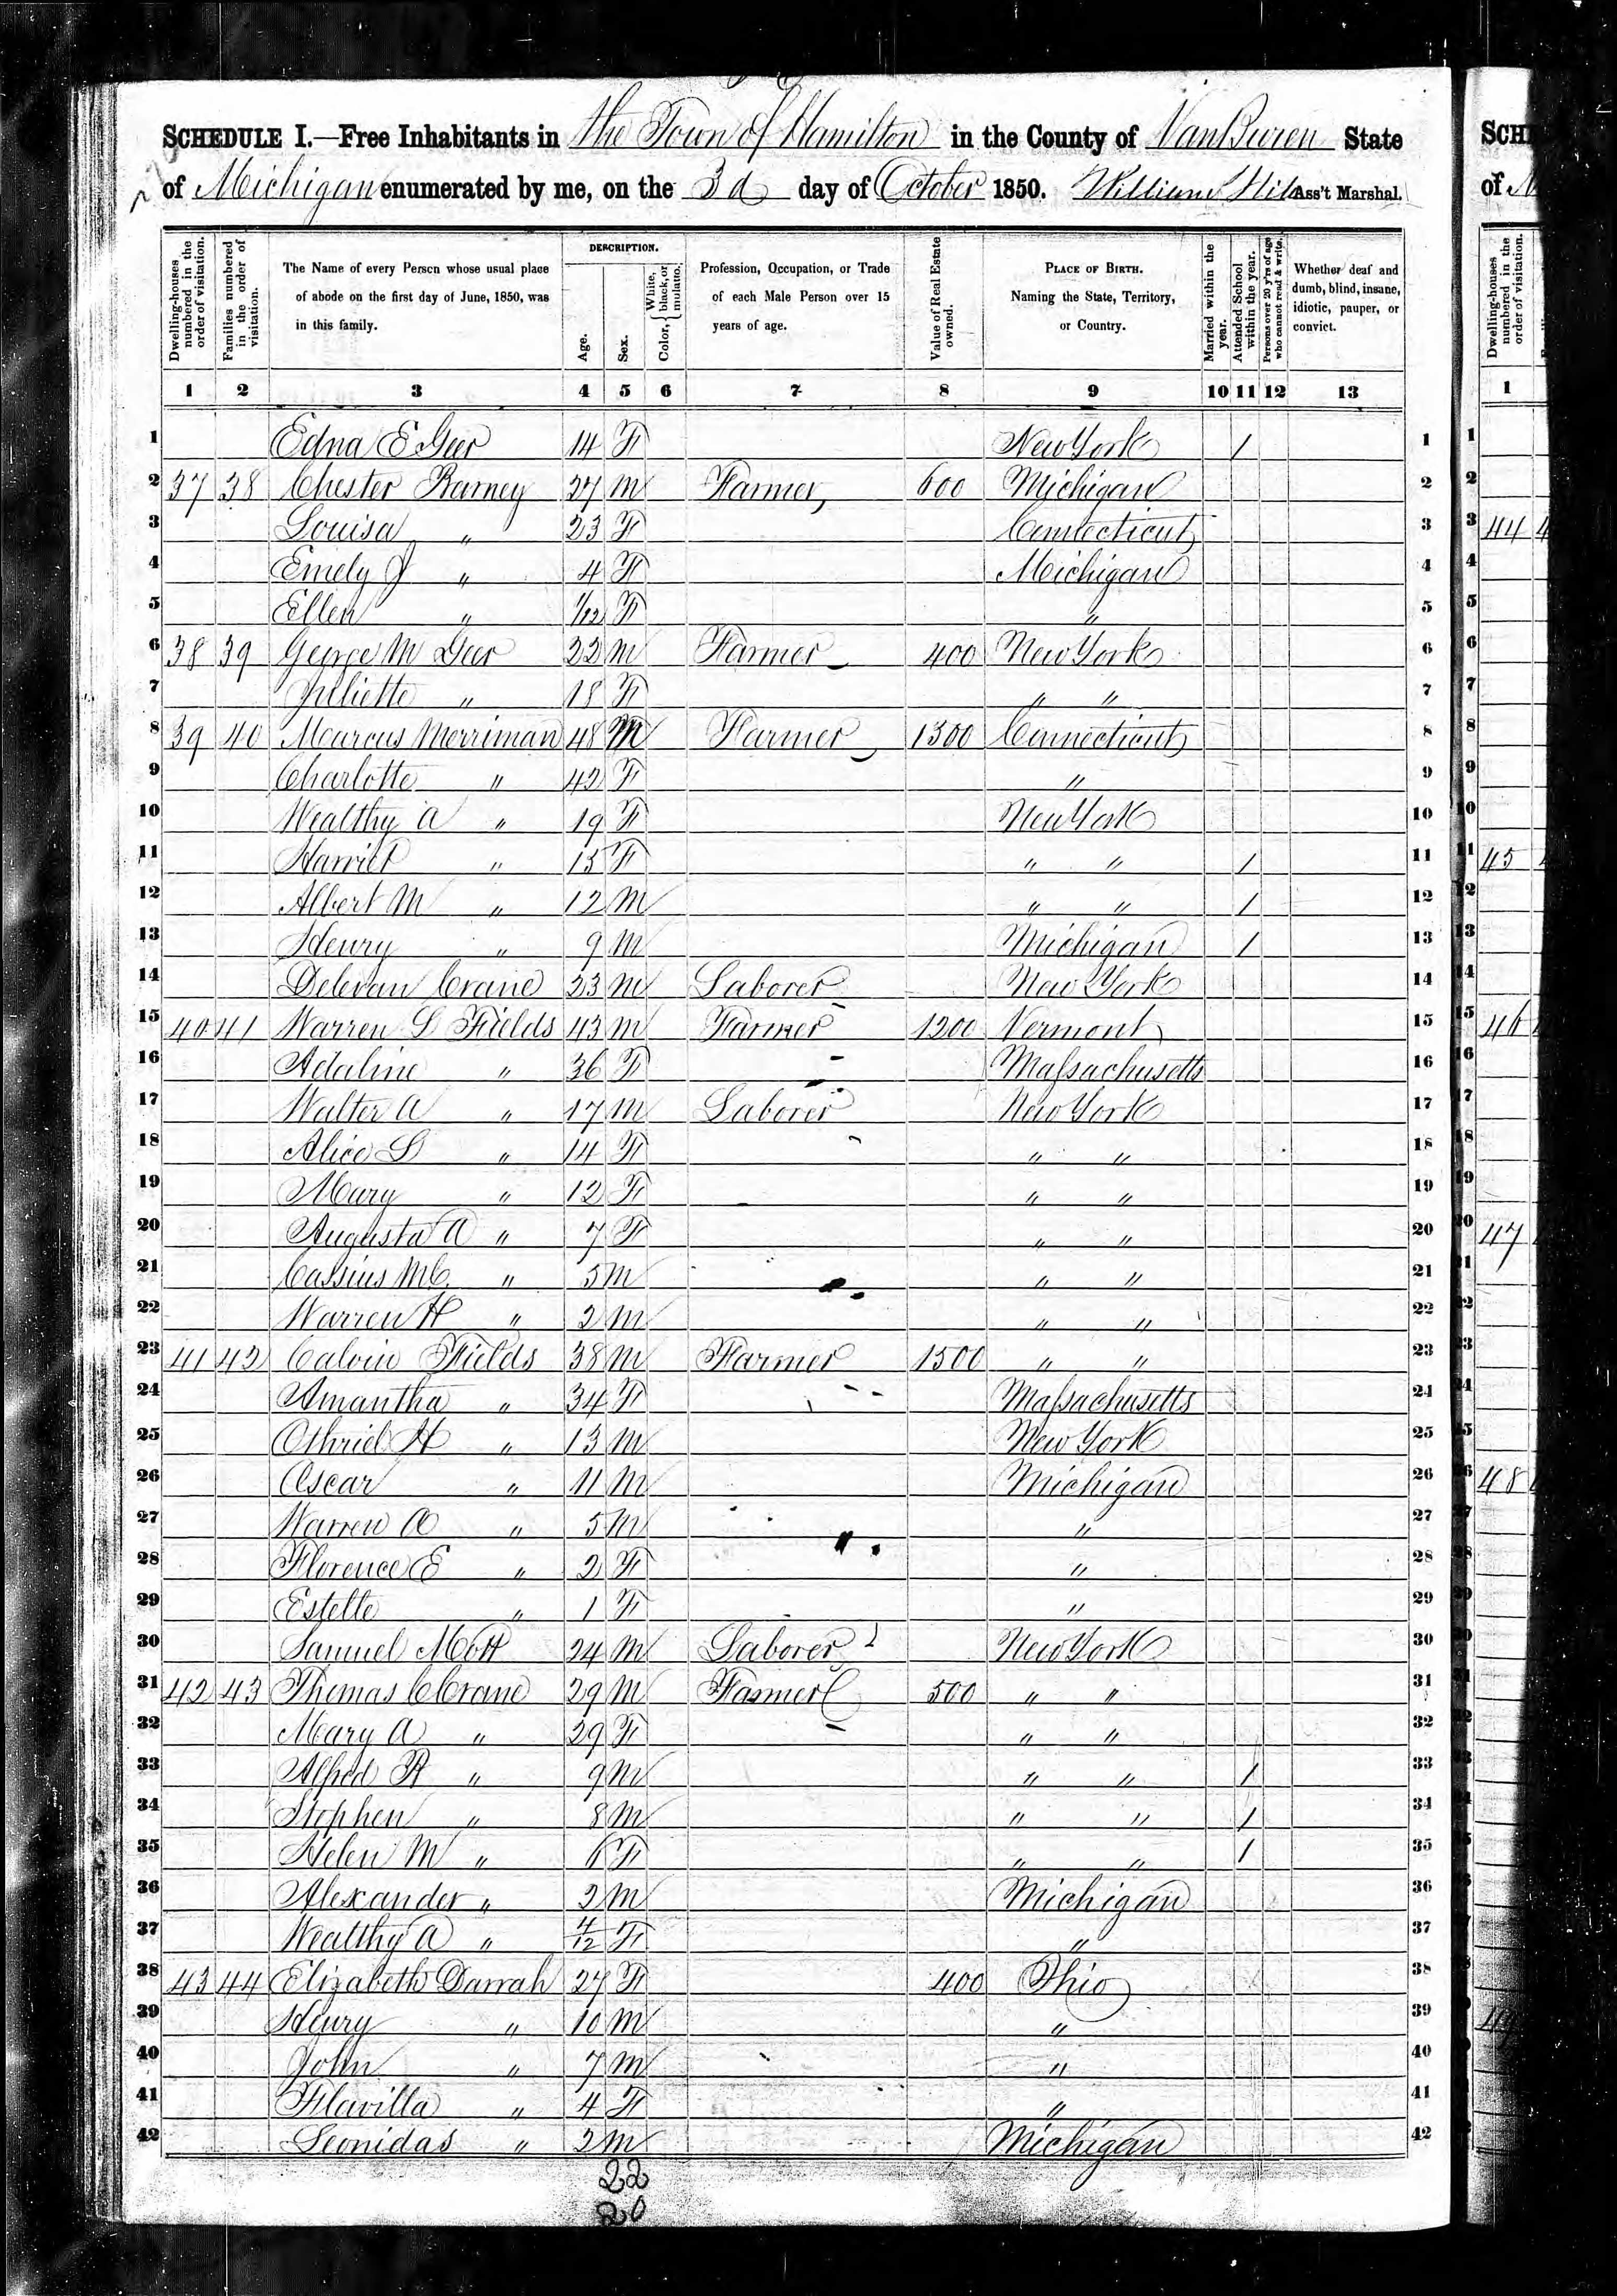 SCHEDULE I.—Free Inhabitants in the Town of Hamilton in the County of Van Buren State
of Michigan enumerated by me, on the 3d day of October 1850. William Ass't Marshal.
Dwelling-houses numbered in the order of visitation.
Families numbered in the order of visitation.
The Name of every Person whose usual place of abode on the first day of June, 1850, was in this family.
DESCRIPTION.
Age.
Sex.
Color, { White, black, or mulatto.
Profession, Occupation, or Trade of each Male Person over 15 years of age.
Value of Real Estate owned.
PLACE OF BIRTH. Naming the State, Territory, or Country.
Married within the year.
Attended School within the year.
Persons over 20 y'rs of age who cannot read & write.
Whether deaf and dumb, blind, insane, idiotic, pauper, or convict.
1 2 3 4 5 6 7 8 9 10 11 12 13
1 Edna E Geer 14 F New York / 1
2 37 38 Chester Barney 27 M Farmer 600 Michigan 2
3 Louisa " 23 F Connecticut 3
4 Emely J " 4 F Michigan 4
5 Ellen " 1/12 F " 5
6 38 39 George M Geer 22 M Farmer 400 New York 6
7 Juliette " 18 F " " 7
8 39 40 Marcus Merriman 48 M Farmer 1300 Connecticut 8
9 Charlotte " 42 F " 9
10 Wealthy A " 19 F New York 10
11 Harriet " 15 F " " / 11
12 Albert M " 12 M " " / 12
13 Henry " 9 M Michigan / 13
14 Delevan Crane 23 M Laborer New York 14
15 40 41 Warren L Fields 43 M Farmer 1200 Vermont 15
16 Adaline " 36 F Massachusetts 16
17 Walter A " 17 M Laborer New York 17
18 Alice L " 14 F " " 18
19 Mary " 12 F " " 19
20 Augusta A " 7 F " " 20
21 Cassius M C. " 5 M " " 21
22 Warren H " 2 M " " 22
23 41 42 Calvin Fields 38 M Farmer 1500 " " 23
24 Amantha " 34 F Massachusetts 24
25 Othniel H " 13 M New York 25
26 Oscar " 11 M Michigan 26
27 Warren O " 5 M " 27
28 Florence E " 2 F " 28
29 Estelle " 1 F " 29
30 Samuel Mott 24 M Laborer New York 30
31 42 43 Thomas C Crane 29 M Farmer 500 " " 31
32 Mary A " 29 F " " 32
33 Alfred R " 9 M " " / 33
34 Stephen " 8 M " " / 34
35 Helen M " 6 F " " / 35
36 Alexander " 2 M Michigan 36
37 Wealthy A " 4/12 F " 37
38 43 44 Elizabeth Darrah 27 F 400 Ohio 38
39 Henry " 10 M " 39
40 John " 7 M " 40
41 Flavilla " 4 F " 41
42 Leonidas " 2 M Michigan 42
22
20
SCH
of M
Dwelling-houses numbered in the order of visitation.
1
44
45
46
47
48